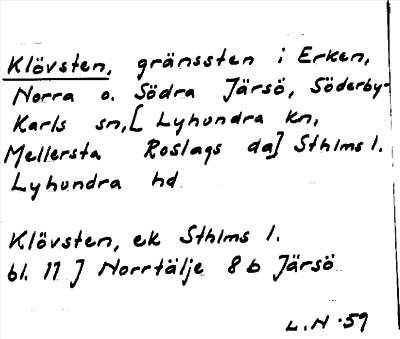 Klövsten, gränssten i Erken,
Norra o. Södra Järsö, Söderby-
Karls sn, [Lyhundra kn,
Mellersta Roslags da] Sthlms l.
Lyhundra hd
Klövsten, ek Sthlms l.
bl. 11 J Norrtälje 8 b Järsö
L.N. 59